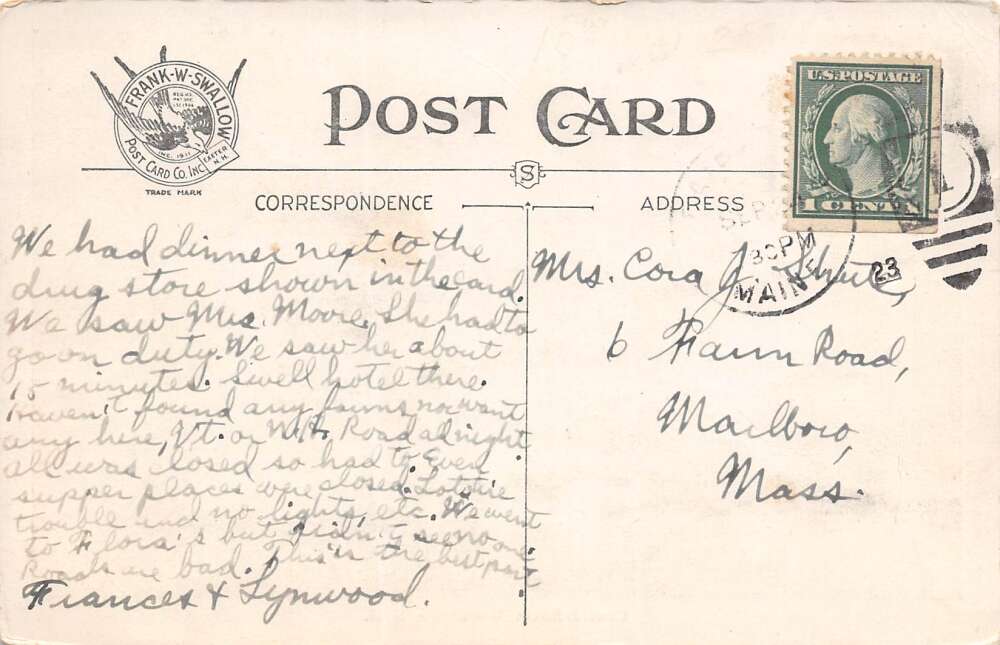 FRANK-W-SWALLOW
POST CARD CO. INC.
INC. 1911
EXETER N.H.
TRADE MARK
POST CARD
S
CORRESPONDENCE
ADDRESS
U.S. POSTAGE
1 CENT
SEP
30PM
MAINE
23
We had dinner next to the
drug store shown in the card.
We saw Mrs. Moore. She had to
go on duty. We saw her about
15 minutes. Swell hotel there.
Haven't found any farms nor want
any here, Vt. or N.H. Road all night
all was closed so had to. Even
supper places were closed. Lot tire
trouble and no lights, etc. We went
to Flora's but didn't see no one.
Roads are bad. This is the best part
Frances & Lynwood.
Mrs. Cora J.
6 Fawn Road,
Marlboro,
Mass.